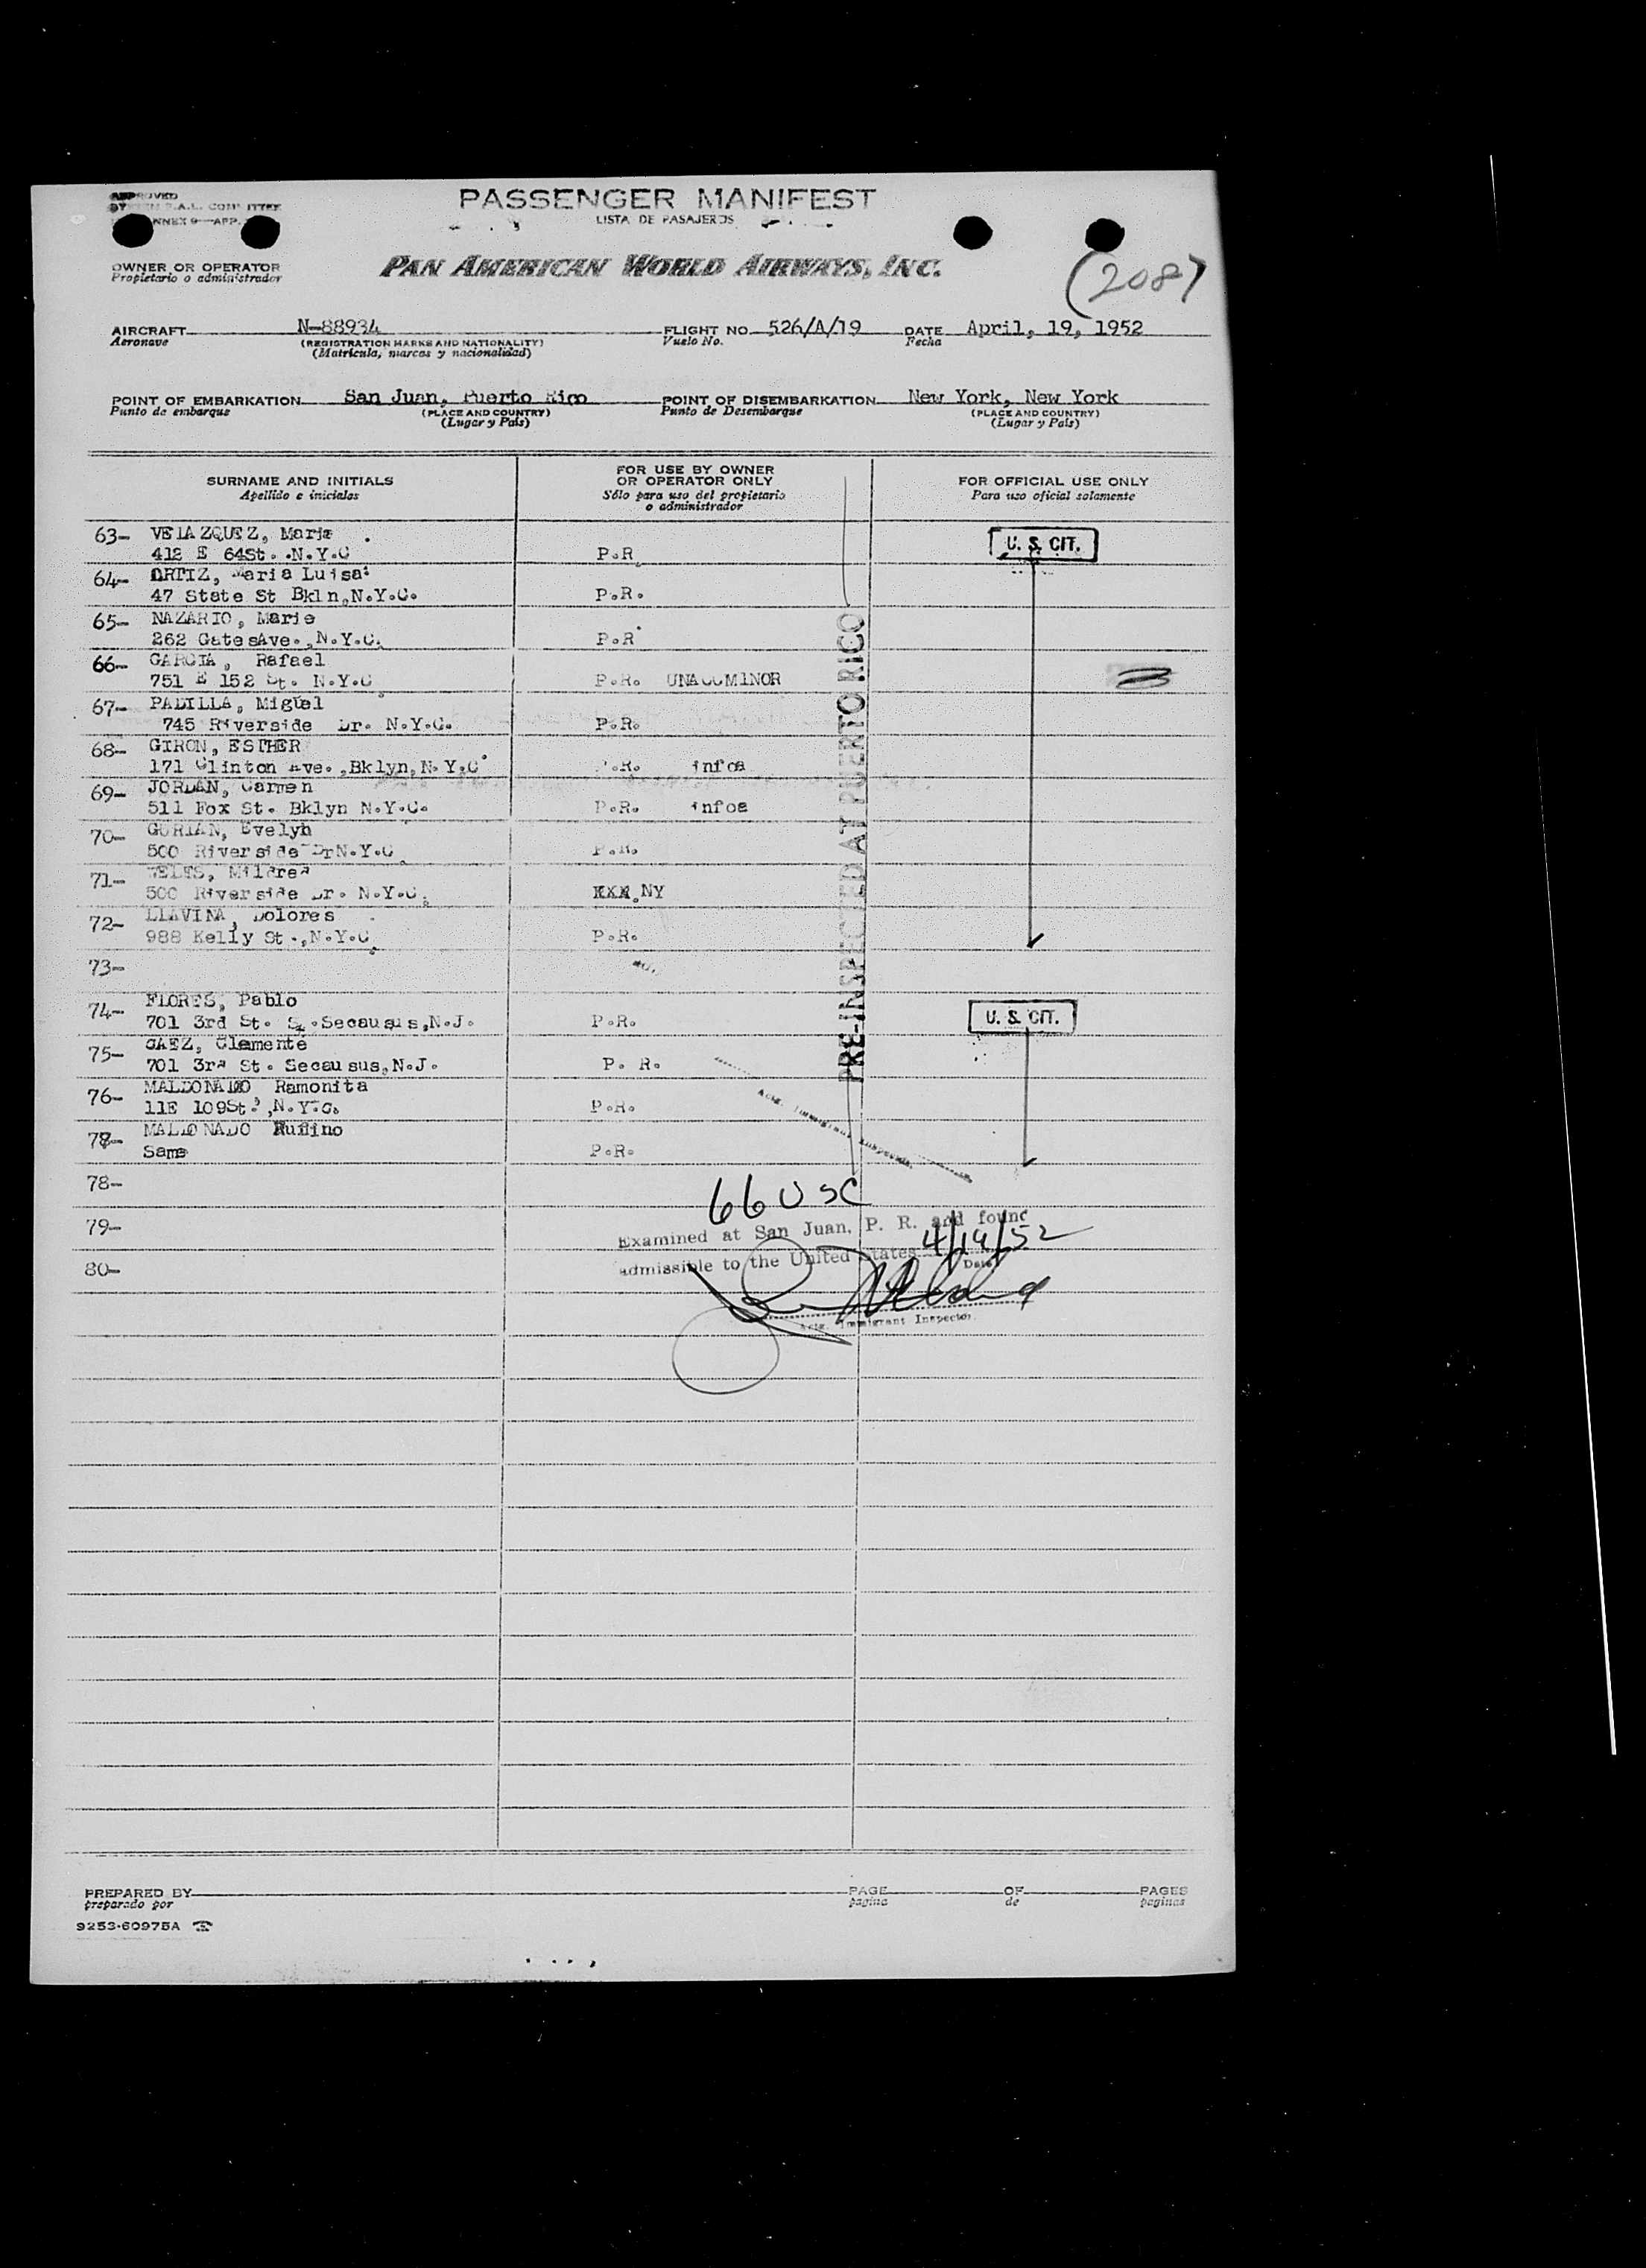 APPROVED
COMMITTEE
ANNEX 9—APP.
PASSENGER MANIFEST
LISTA DE PASAJEROS
OWNER OR OPERATOR
Propietario o administrador
PAN AMERICAN WORLD AIRWAYS, INC.
(208)
AIRCRAFT N-88934 FLIGHT NO. 526/A/19 DATE April, 19, 1952
Aeronave (REGISTRATION MARKS AND NATIONALITY) Vuelo No. Fecha
(Matrícula, marcas y nacionalidad)
POINT OF EMBARKATION San Juan, Puerto Rico POINT OF DISEMBARKATION New York, New York
Punto de embarque (PLACE AND COUNTRY) Punto de Desembarque (PLACE AND COUNTRY)
(Lugar y País) (Lugar y País)
SURNAME AND INITIALS
Apellido e iniciales
FOR USE BY OWNER
OR OPERATOR ONLY
Sólo para uso del propietario
o administrador
FOR OFFICIAL USE ONLY
Para uso oficial solamente
63- VELAZQUEZ, Maria
412 E 64St. .N.Y.C P.R
U. S. CIT.
64- ORTIZ, Maria Luisa
47 State St Bkln,N.Y.C. P.R.
65- NAZARIO, Marie
262 GatesAve.,N.Y.C. P.R
66- GARCIA, Rafael
751 E 152 St. N.Y.C P.R. UNACCMINOR
67- PADILLA, Miguel
745 Riverside Dr. N.Y.C. P.R.
68- GIRON, ESTHER
171 Clinton Ave.,Bklyn,N.Y.C P.R. infoa
69- JORDAN, Carmen
511 Fox St. Bklyn N.Y.C. P.R. infoa
70- GURIAN, Evelyn
500 Riverside Dr N.Y.C P.R.
71- Mildred
500 Riverside Dr. N.Y.C. XXX NY
72- LLAVINA, Dolores
988 Kelly St.,N.Y.C P.R.
73-
74- FLORES, Pablo
701 3rd St. S.Secausus,N.J. P.R.
U. S. CIT.
75- GAEZ, Clemente
701 3rd St. Secausus,N.J. P. R.
76- MALDONADO Ramonita
11E 109St.,N.Y.C. P.R.
78- MALDONADO Rufino
Same P.R.
PRE-INSPECTED AT PUERTO RICO
Actg. Immigrant Inspector
78-
66 USC
79-
Examined at San Juan, P. R. and found
admissible to the United States 4/19/52
Date
80-
Actg. Immigrant Inspector
PREPARED BY PAGE OF PAGES
preparado por pagina de paginas
9253-60975A